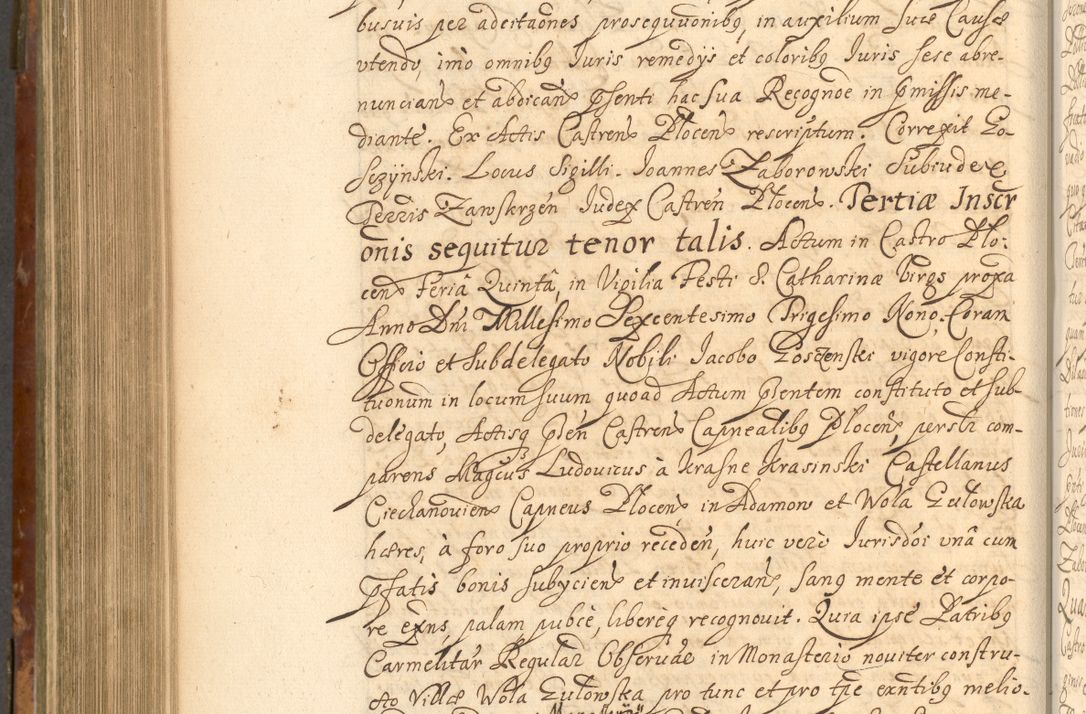 busuis per adcitaōnes prosequuōnibꝙ, in auxilium suæ Causæ
utendo, imò omnibꝙ Iuris remedijs et coloribꝙ Iuris sese abre-
nuncians et abdicans pſenti hac sua Recognōe in pmiſſis me-
diante. Ex Actis Castren Plocen rescriptum. Correxit Go-
sczÿnski. Locus Sigilli. Ioannes Zaborowski Subiudex
Terris Zawskrzen Iudex Castren Plocen. Tertiæ Inscr
ōnis sequitur tenor talis. Actum in Castro Plo-
cen Feriâ Quintâ, in Vigilia Festi S. Catharinæ Virgs proxa
Anno Dni Millesimo Sexcentesimo Trigesimo Nono, Coram
Officio et Subdelegato Nobili Iacobo vigore Consti-
tuonum in locum suum quoad Actum pſentem constituto et sub-
delegato, Actisꝙ pſen Castren Capnealibꝙ Plocen, persłr com-
parens Magcus Ludovicus à Krasne Krasinski Castellanus
Ciechanovien Capneus Plocen in Adamow et Wola Gułowska
hæres, à foro suo proprio receden, huic verò Iurisdōi unâ cum
pſatis bonis subycien et inuisceran, sang mente et corpo-
re exns, palam pubcè, libereꝙ recognovit. Quia ipse Patribꝙ
Carmelitar Regular Observæ in Monasterio noviter constru-
cto Villæ Wola Gułowska pro tunc et pro tpe exntibꝙ melio-